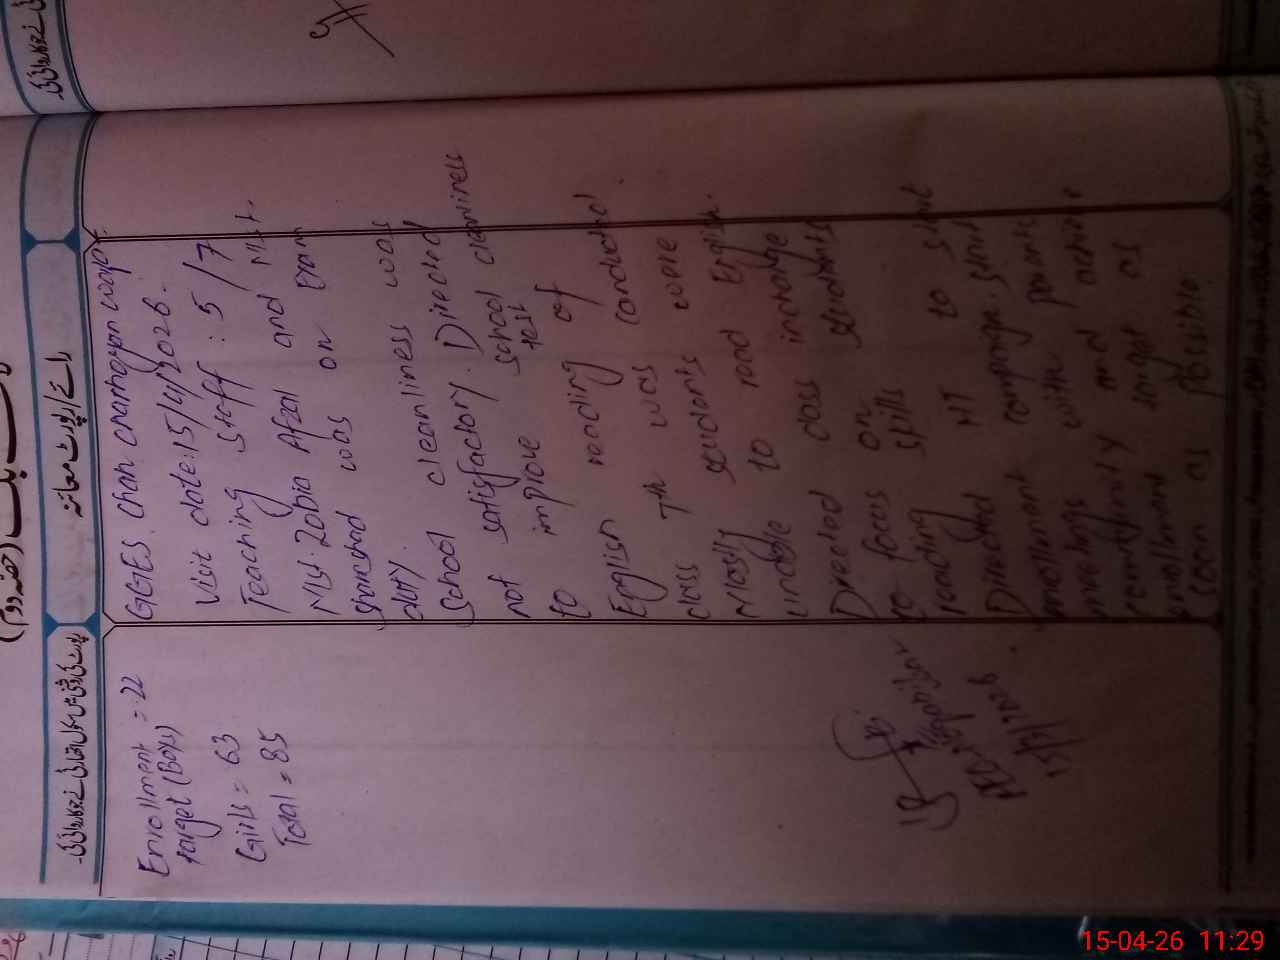 رائے / رپورٹ معائنہ
GGES. chan charhoyan wala.
Visit date: 15/4/2026.
Teaching staff : 5/7
Mst. Zobia Afzal and Mst.
Shamshad was on Exam
duty.
School cleanliness was
not satisfactory. Directed
to improve school cleanliness
English reading test of
class 7th was conducted.
Mostly students were
unable to read English.
Directed class incharge
to foces on students
reading skills
Directed HT to start
enrollment campaige. start
meetings with parents
community and achive
enrollment target as
soon as possible.
Enrollment = 22
target (Boys)
Girls = 63
Total = 85
15-04-26 11:29